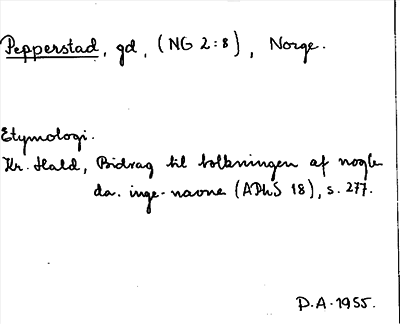 Pepperstad, gd, (NG 2:8), Norge.
Etymologi.
Kr. Hald, Bidrag til tolkningen af nogle
da. inge-navne (APhS 18), s. 277.
P.A. 1955.